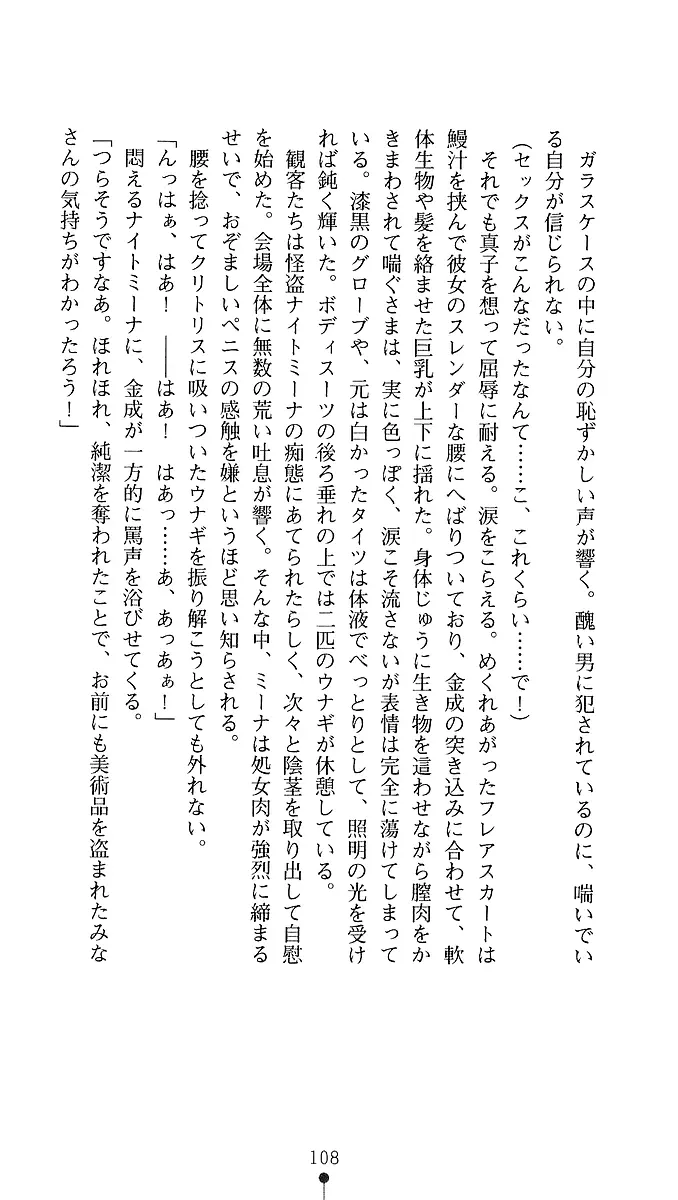 ガラスケースの中に自分の恥ずかしい声が響く。醜い男に犯されているのに、喘いでい
る自分が信じられない。
（セックスがこんなだったなんて……こ、これくらい……で！）
それでも真子を想って屈辱に耐える。涙をこらえる。めくれあがったフレアスカートは
鰻汁を挟んで彼女のスレンダーな腰にへばりついており、金成の突き込みに合わせて、軟
体生物や髪を絡ませた巨乳が上下に揺れた。身体じゅうに生き物を這わせながら膣肉をか
きまわされて喘ぐさまは、実に色っぽく、涙こそ流さないが表情は完全に蕩けてしまって
いる。漆黒のグローブや、元は白かったタイツは体液でべっとりとして、照明の光を受け
れば鈍く輝いた。ボディスーツの後ろ垂れの上では二匹のウナギが休憩している。
観客たちは怪盗ナイトミーナの痴態にあてられたらしく、次々と陰茎を取り出して自慰
を始めた。会場全体に無数の荒い吐息が響く。そんな中、ミーナは処女肉が強烈に締まる
せいで、おぞましいペニスの感触を嫌というほど思い知らされる。
腰を捻ってクリトリスに吸いついたウナギを振り解こうとしても外れない。
「んっはぁ、はあ！　――はあ！　はあっ……あ、あっあぁ！」
悶えるナイトミーナに、金成が一方的に罵声を浴びせてくる。
「つらそうですなあ。ほれほれ、純潔を奪われたことで、お前にも美術品を盗まれたみな
さんの気持ちがわかったろう！」
108